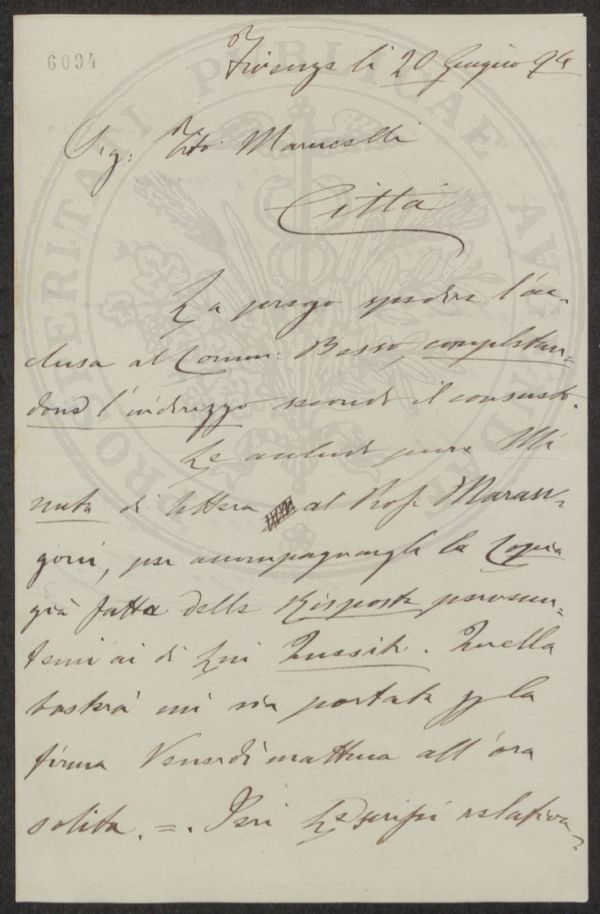 6094
Firenze li 20 Giugno 94
Sig: Tito Marucelli
Città
La prego spedire l'ac-
clusa al Comm: Basso, completan-
done l'indirizzo secondo il consueto.
Le accludo pure Mi
nuta di lettera al Prof. Maran-
goni, per accompagnargli la Copia
già fatta delle Risposte pervenu-
temi ai di Lui Quesiti. Quella
basterà mi sia portata per la
firma Venerdì mattina all'ora
solita. = . Ieri Le scrissi relativa-
POSTERITATI PUBLICAE AVGENDAE